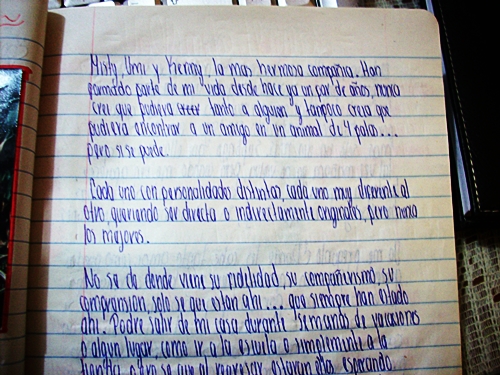 Misty, Umi y Kenny, la mas hermosa compañia. Han
formado parte de mi vida desde hace ya un par de años, nunca
crei que pudiera creer tanto a alguien y tampoco creia que
pudiera encontrar a un amigo en un animal de 4 patas...
pero si se puede.
Cada uno con personalidades distintas, cada uno muy diferente al
otro, queriendo ser directa o indirectamente originales, pero nunca
los mejores.
No se de donde viene su fidelidad, su compañerismo, su
comprension, solo se que estan ahi... que siempre han estado
ahi. Podre salir de mi casa durante semanas de vacaciones
a algun lugar, como ir a la escuela o simplemente a la
tienita, pero se que al regresar, estaran ellos esperando